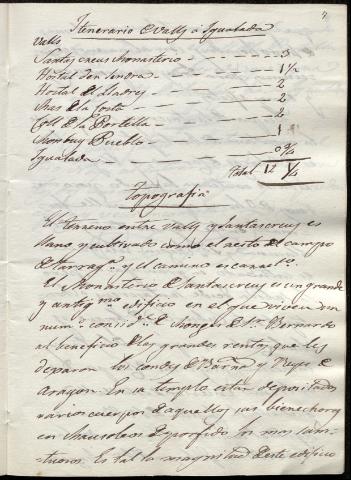 7
Itinerario de Valls á Igualada
Valls
Santas creus Monasterio 3
Hostal den Sendra 1 1/2
Hostal de Lladres 2
Mas de la Costa 2
Coll de la Portella 2
Monbuy Pueblo 1
Igualada 0 3/4
Total 12 1/4
Topografia
El terreno entre Valls y Santascreus es
llano y cultivado como el resto del campo
de Tarragª. y el camino es carretº.
El Monasterio de Santascreus es un grande
y antigmo. edificio en el que viven un
numº. considº. de Monges de Sn. Bernardo
al beneficio de las grandes rentas que les
dejaron los condes de Barna. y Reyes de
Aragon. En su templo estan depositados
varios cuerpos de aquellos sus bienechores
en Mausoleos de porfido los mas sun-
-tuosos. Es tal la magnitud de este edificio